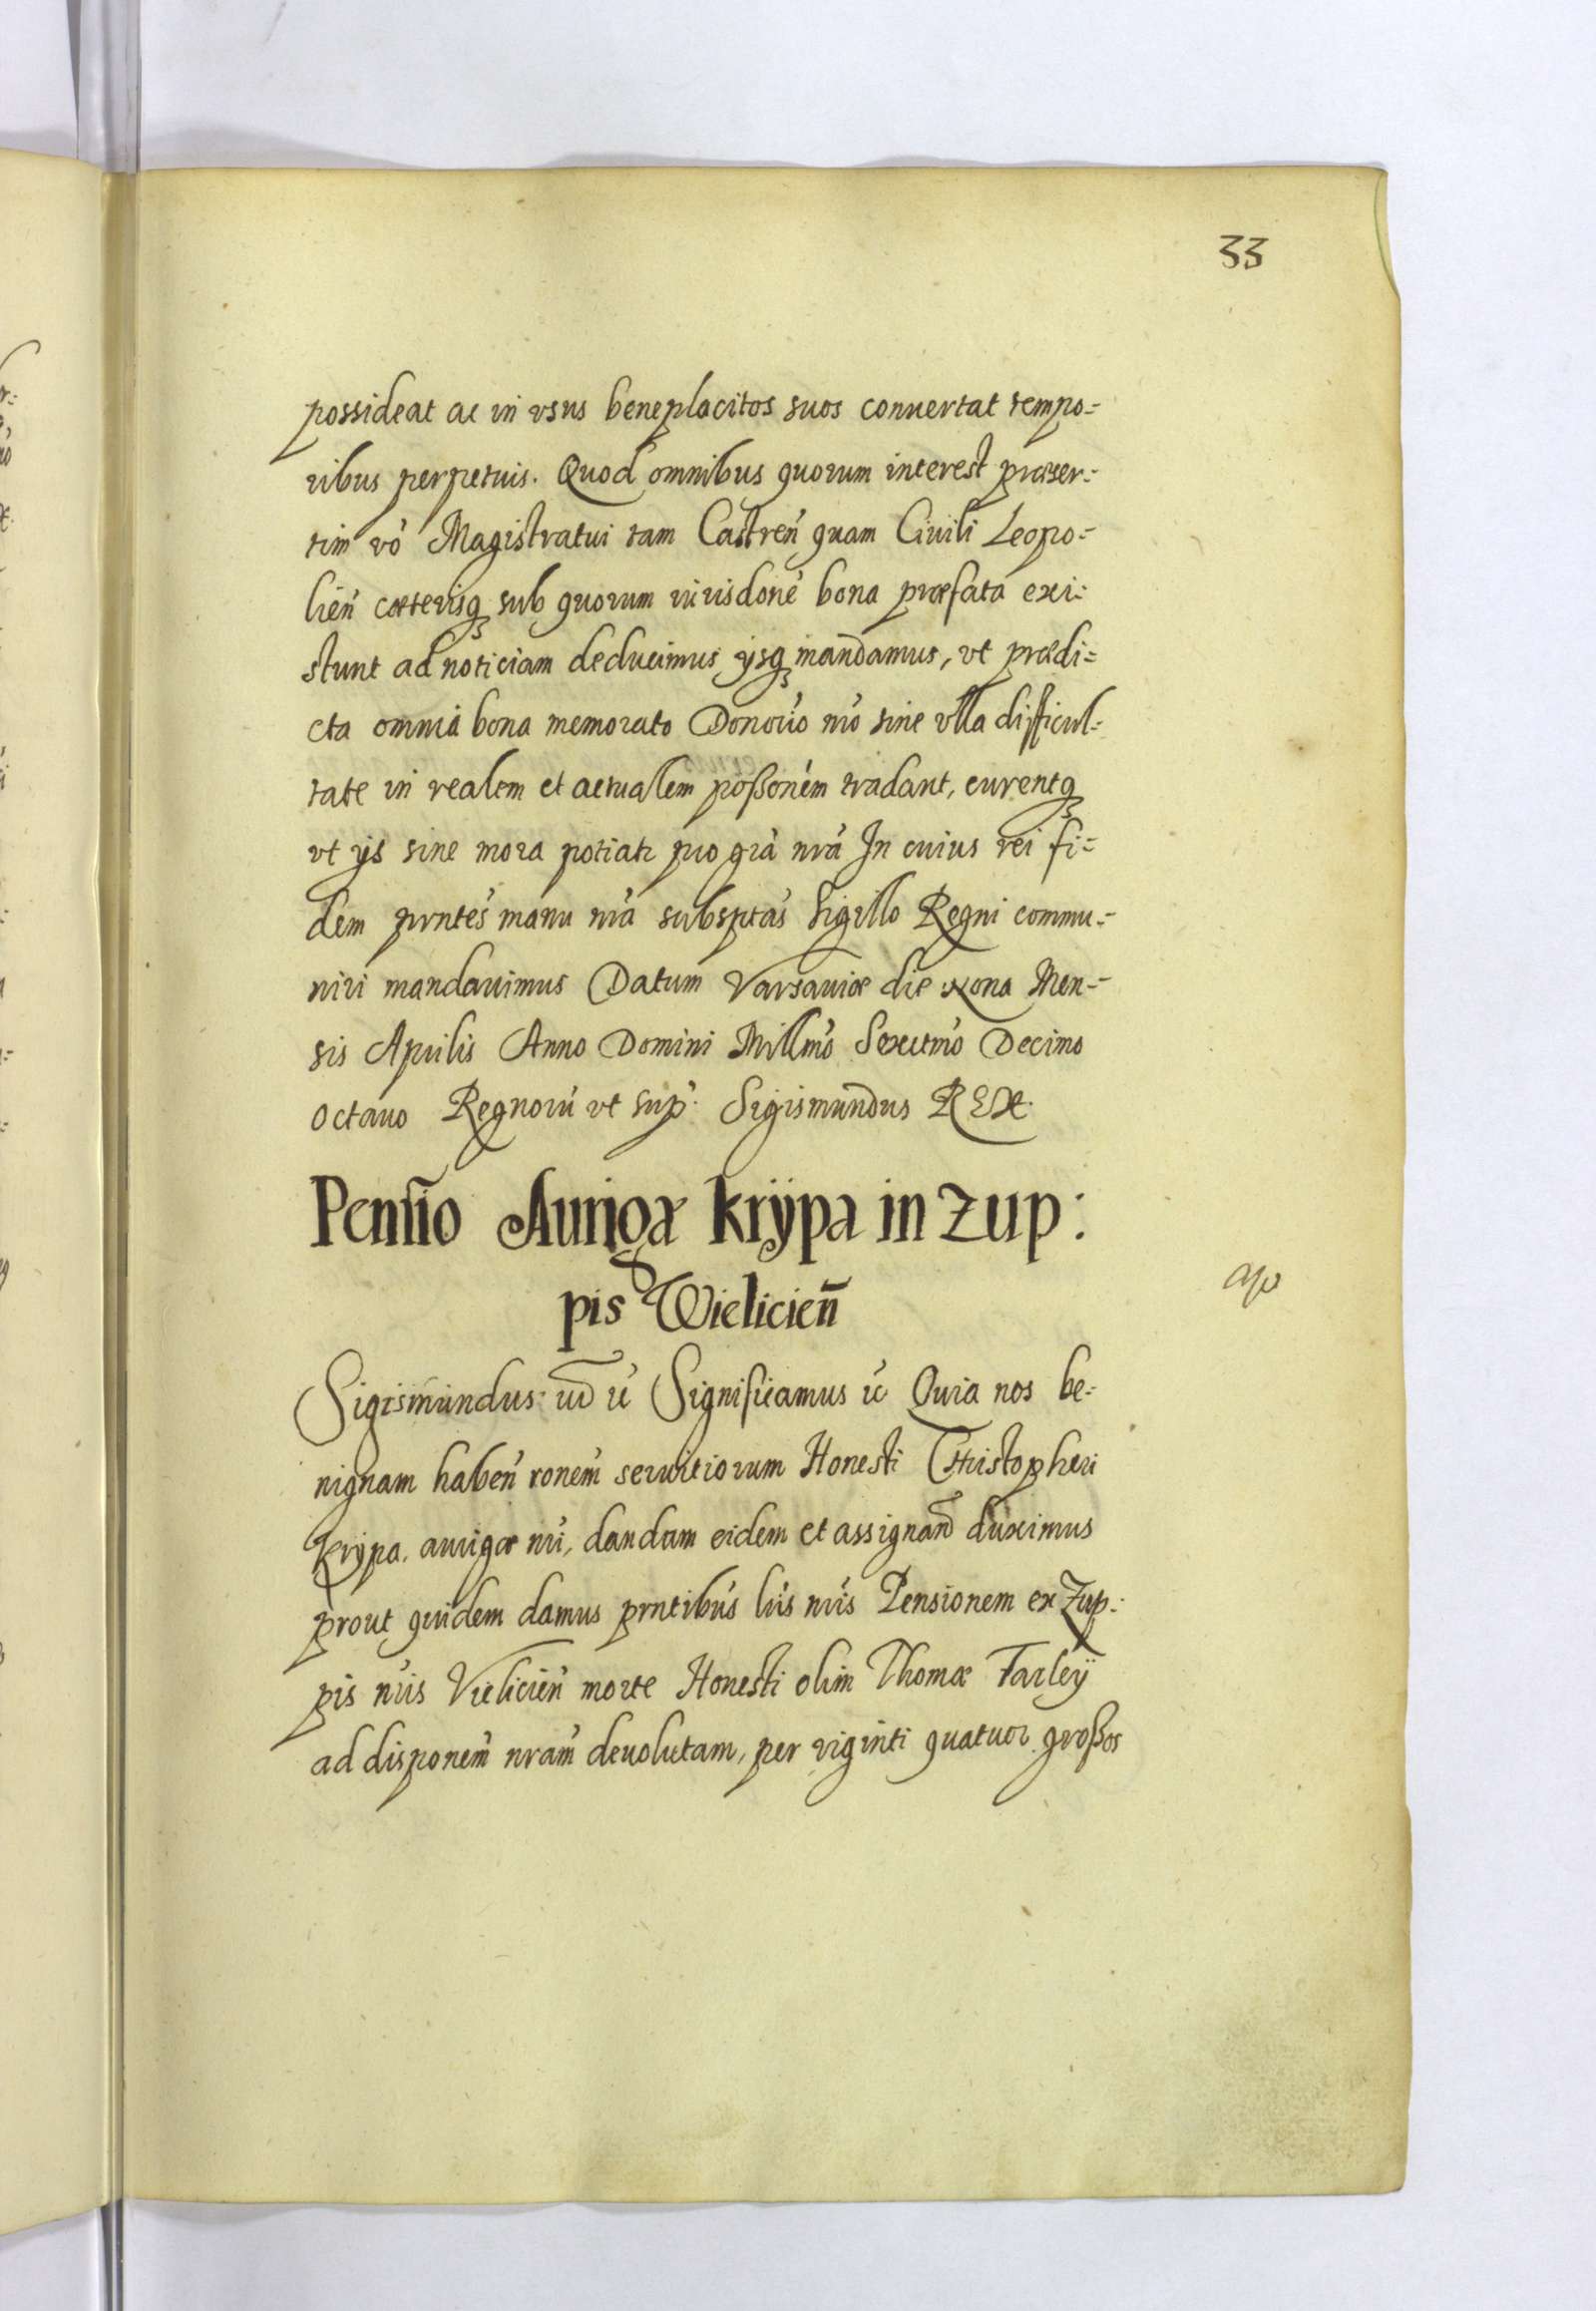 33
possideat ac in vsus beneplacitos suos conuertat tempo=
ribus perpetuis. Quod omnibus quorum interest præser=
tim vo᷃ Magistratui tam Castren̄ quam Ciuili Leopo=
lien̄ cæterisq̨ sub quorum iurisdone᷃ bona præfata exi=
stunt ad noticiam deducimus ijsq̨ mandamus, vt prædi=
cta omnia bona memorato Donorio nr̄o sine vlla difficul=
tate in realem et actualem poßone᷃m tradant, curentq̨
vt ijs sine mora potiatr pro gr̄a nr̄a In cuius rei fi=
dem prnte᷃s manu nr̄a subsptas Sigillo Regni commu=
niri mandauimus Datum Varsauiæ die Nona Men=
sis Aprilis Anno Domini Millm̄o Sexctm̄o Decimo
octauo Regnoru᷃ vt sup: Sigismundus REX.
Pensio Aurigæ Krÿpa in Zup:
pis Wielicien̄
Sigismundus Significamus Quia nos be=
nignam haben̄ rone᷃m seruitiorum Honesti Christopheri
Krÿpa, aurigæ nr̄i, dandam eidem et assignand̄ duximus
prout quidem damus prntibus lr̄is nr̄is Pensionem ex Zup=
pis nr̄is Vielicien̄ morte Honesti olim Thomæ Farleÿ
ad dispone᷃m nram̄ deuolutam, per viginti quatuor großos